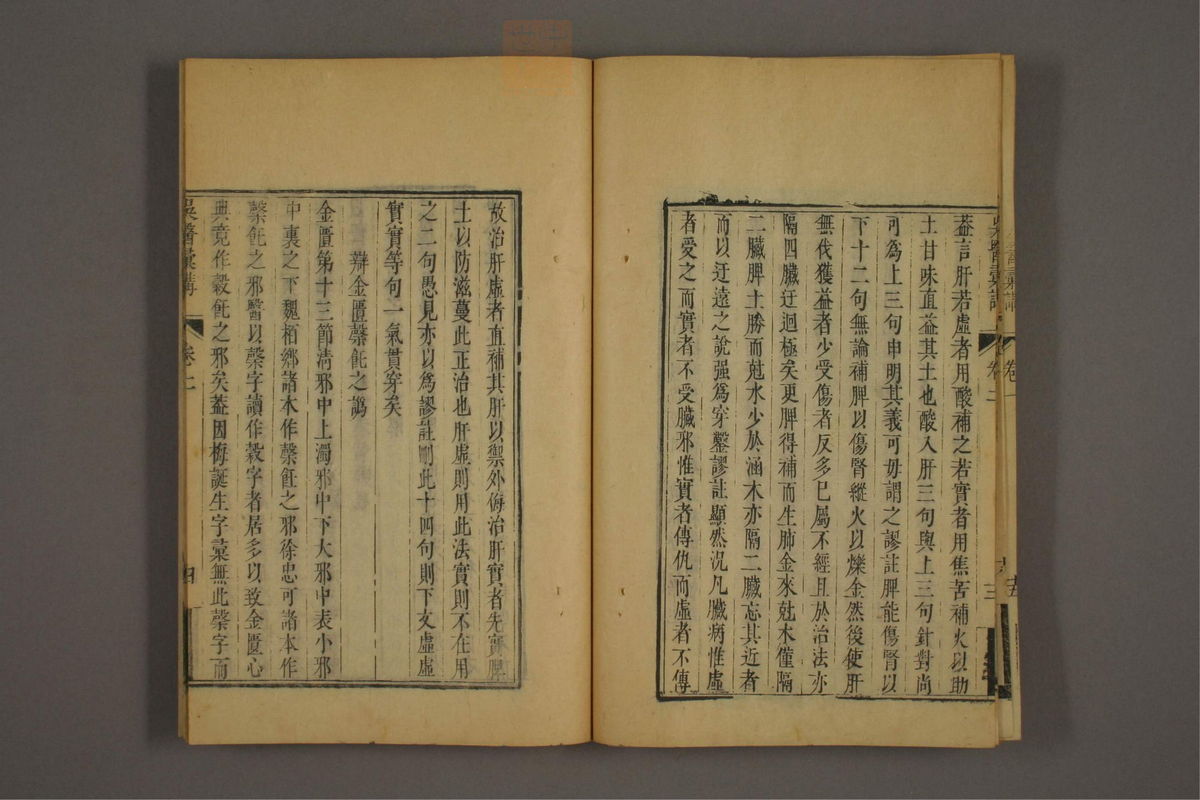 吳醫彙講 卷二 三
葢言肝若虛者用酸補之若實者用焦苦補火以助
土甘味直益其土也酸入肝三句與上三句針對尚
可為上三句申明其義可毋謂之謬註脾能傷腎以
下十二句無論補脾以傷腎縱火以爍金然後使肝
無伐獲益者少受傷者反多已屬不經且於治法亦
隔四臟迂迴極矣更脾得補而生肺金來尅木僅隔
二臟脾土勝而尅水少於涵木亦隔二臟忘其近者
而以迂遠之說强為穿鑿謬註顯然況凡臟病惟虛
者愛之而實者不受臟邪惟實者傳仇而虛者不傳
故治肝虛者直補其肝以禦外侮治肝實者先實脾
土以防滋蔓此正治也肝虛則用此法實則不在用
之二句愚見亦以為謬註刪此十四句則下文虛虛
實實等句一氣貫穿矣
辯金匱䅽飥之譌
金匱第十三節清邪中上濁邪中下大邪中表小邪
中裏之下魏柏鄉諸本作䅽飥之邪徐忠可諸本作
䅽飥之邪醫以䅽字讀作穀字者居多以致金匱心
典竟作穀飥之邪矣葢因梅誕生字彙無此䅽字而
吳醫彙講 卷二 四